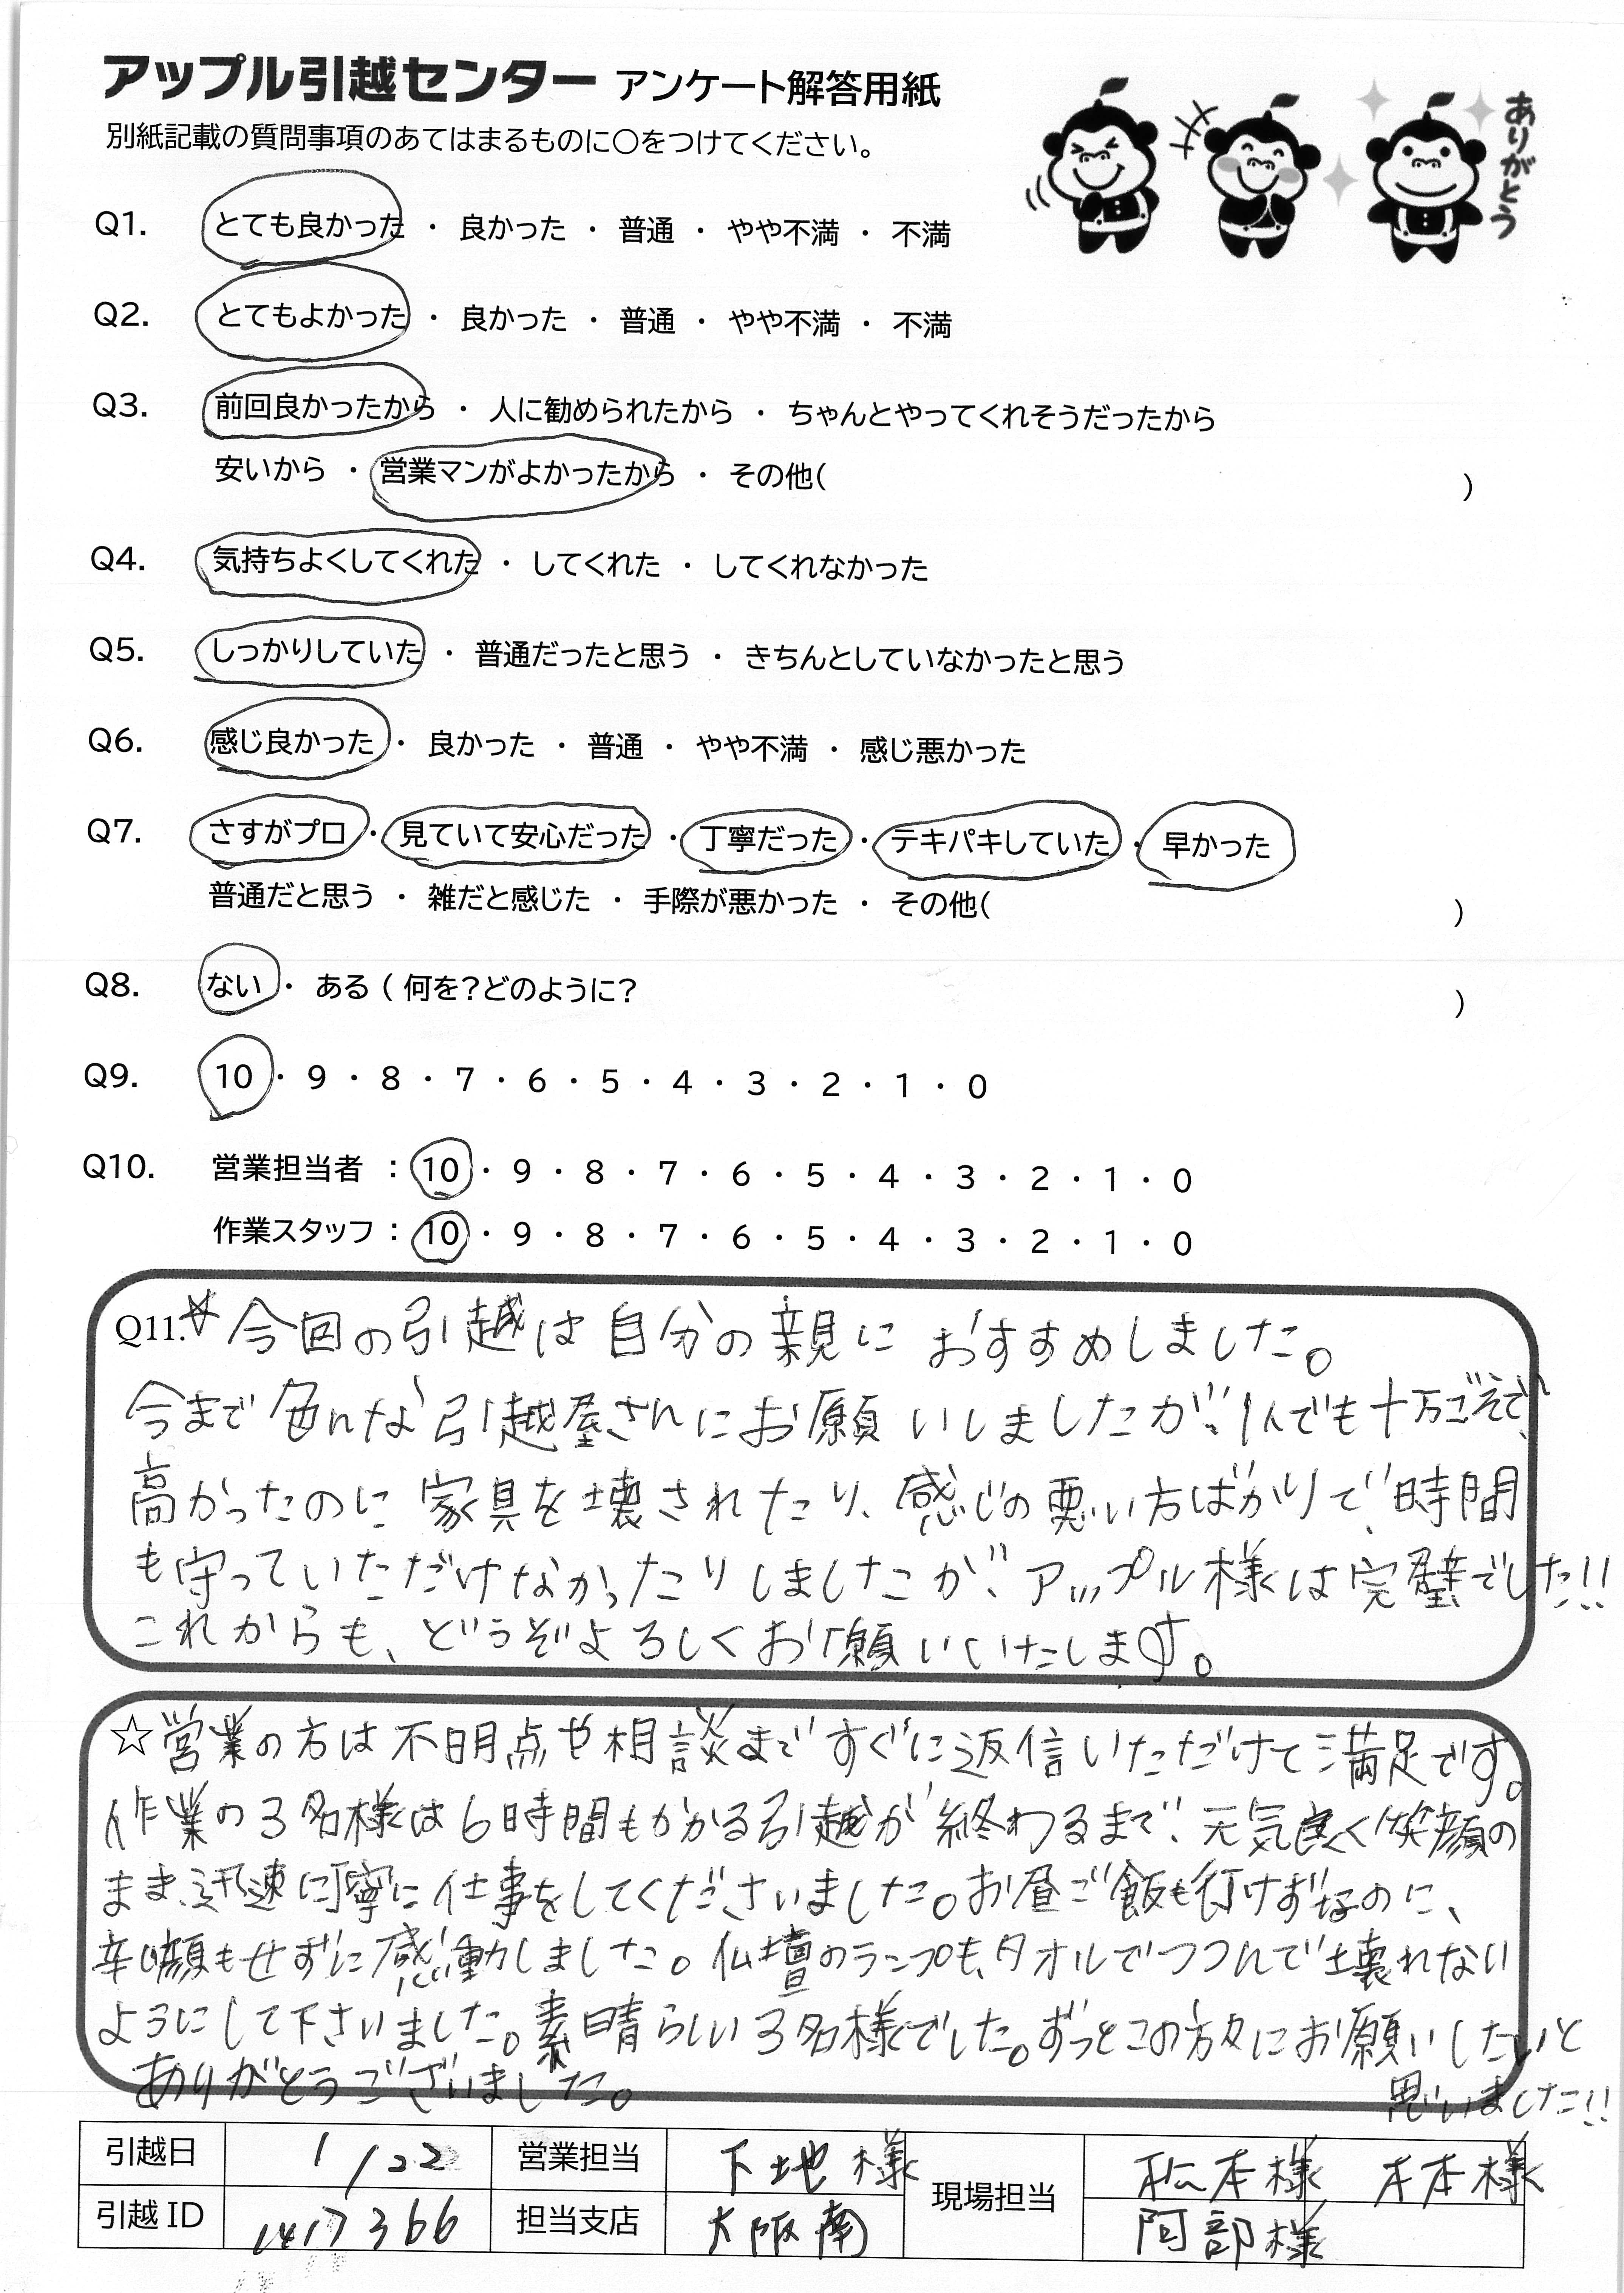 アップル引越センター アンケート解答用紙
別紙記載の質問事項のあてはまるものに〇をつけてください。
ありがとう
Q1. とても良かった ・ 良かった ・ 普通 ・ やや不満 ・ 不満
Q2. とてもよかった ・ 良かった ・ 普通 ・ やや不満 ・ 不満
Q3. 前回良かったから ・ 人に勧められたから ・ ちゃんとやってくれそうだったから
安いから ・ 営業マンがよかったから ・ その他( )
Q4. 気持ちよくしてくれた ・ してくれた ・ してくれなかった
Q5. しっかりしていた ・ 普通だったと思う ・ きちんとしていなかったと思う
Q6. 感じ良かった ・ 良かった ・ 普通 ・ やや不満 ・ 感じ悪かった
Q7. さすがプロ ・ 見ていて安心だった ・ 丁寧だった ・ テキパキしていた ・ 早かった
普通だと思う ・ 雑だと感じた ・ 手際が悪かった ・ その他( )
Q8. ない ・ ある ( 何を?どのように? )
Q9. 10 ・ 9 ・ 8 ・ 7 ・ 6 ・ 5 ・ 4 ・ 3 ・ 2 ・ 1 ・ 0
Q10. 営業担当者 : 10 ・ 9 ・ 8 ・ 7 ・ 6 ・ 5 ・ 4 ・ 3 ・ 2 ・ 1 ・ 0
作業スタッフ : 10 ・ 9 ・ 8 ・ 7 ・ 6 ・ 5 ・ 4 ・ 3 ・ 2 ・ 1 ・ 0
Q11. ☆今回の引越は自分の親におすすめしました。
今まで色んな引越屋さんにお願いしましたが、1人でも十万ごえで、
高かったのに家具を壊されたり、感じの悪い方ばかりで、時間
も守っていただけなかったりしましたが、アップル様は完璧でした!!
これからも、どうぞよろしくお願いいたします。
☆営業の方は不明点や相談まですぐに返信いただけて満足です。
作業の3名様は6時間もかかる引越が終わるまで、元気良く笑顔の
まま、迅速に丁寧に仕事をしてくださいました。お昼ご飯も行けずなのに、
辛い顔もせずに感動しました。仏壇のランプも、タオルでつつんで壊れない
ようにして下さいました。素晴らしい3名様でした。ずっとこの方々にお願いしたいと
思いました!!
ありがとうございました。
引越日 1/22 営業担当 下地様 現場担当 松本様 木本様
引越ID 1417366 担当支店 大阪南 阿部様